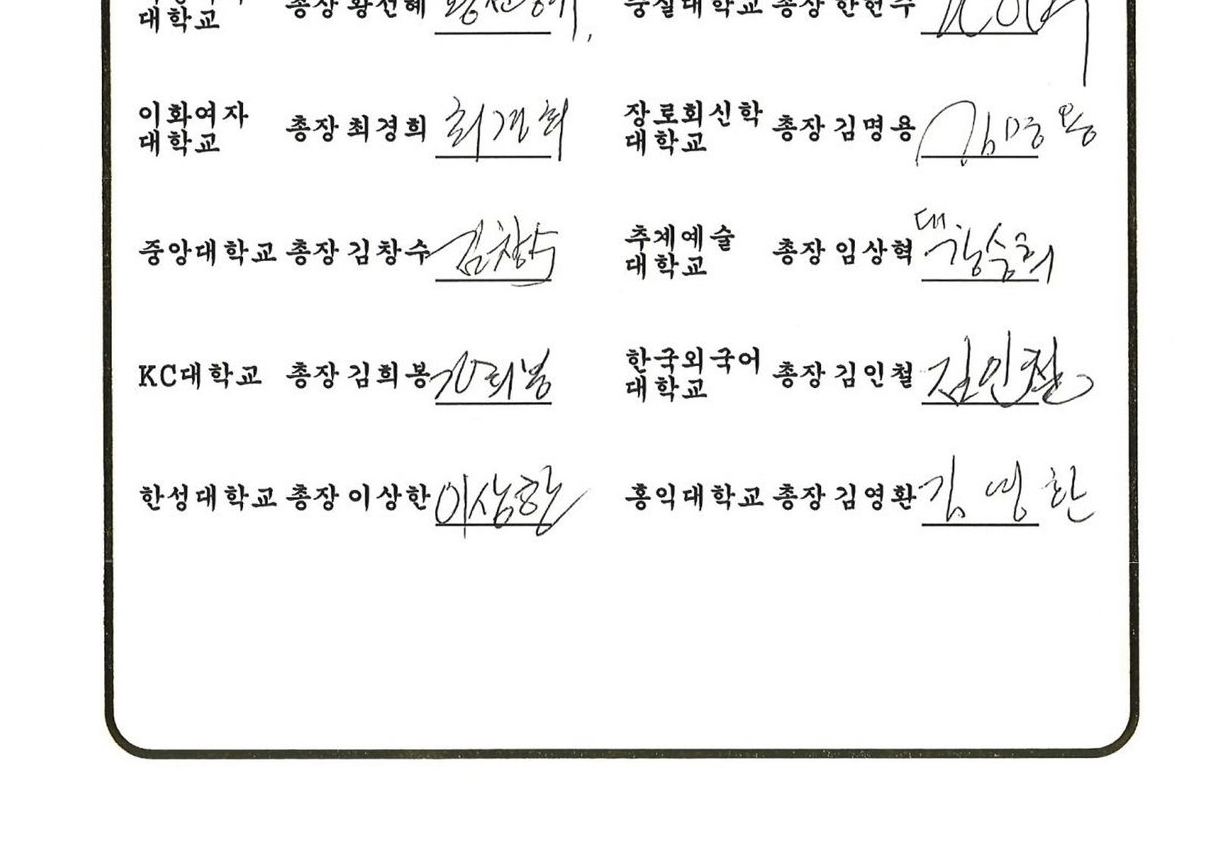 대학교 총장 황선혜 숭실대학교 총장 한헌수
이화여자 장로회신학
대학교 총장 최경희 최경희 대학교 총장 김명용 김명용
중앙대학교 총장 김창수 김창수 추계예술
대학교 총장 임상혁 대
KC대학교 총장 김희봉 김희봉 한국외국어
대학교 총장 김인철 김인철
한성대학교 총장 이상한 이상한 홍익대학교 총장 김영환 김영환